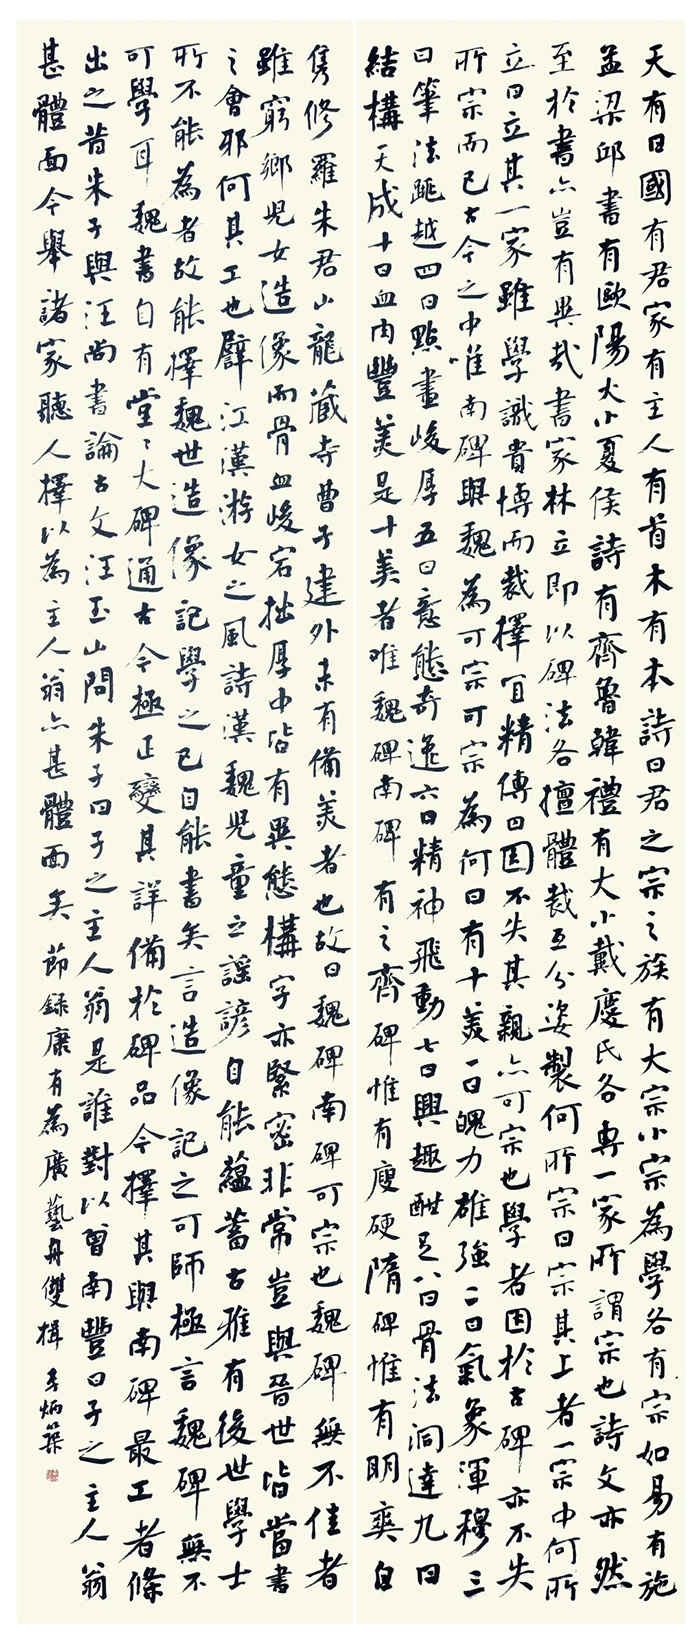 天有日國有君家有主人有首木有本詩曰君之宗之族有大宗小宗為學各有宗如易有施
孟梁邱書有歐陽大小夏侯詩有齊魯韓禮有大小戴慶氏各專一家所謂宗也詩文亦然
至於書亦豈有異哉書家林立即以碑法各擅體裁互分姿製何所宗曰宗其上者一宗中何所
立曰立其一家雖學識貴博而裁擇宜精傳曰因不失其親亦可宗也學者因於古碑亦不失
所宗而已古今之中唯南碑與魏為可宗可宗為何曰有十美一曰魄力雄強二曰氣象渾穆三
曰筆法跳越四曰點畫峻厚五曰意態奇逸六曰精神飛動七曰興趣酣足八曰骨法洞達九曰
結構天成十曰血肉豐美是十美者唯魏碑南碑有之齊碑惟有瘦硬隋碑惟有明爽自
雋修羅朱君山龍藏寺曹子建外未有備美者也故曰魏碑南碑可宗也魏碑無不佳者
雖窮鄉兒女造像而骨血峻宕拙厚中皆有異態構字亦緊密非常豈與晉世皆當書
之會邪何其工也譬江漢游女之風詩漢魏兒童之謠諺自能蘊蓄古雅有後世學士
所不能為者故能擇魏世造像記學之已自能書矣言造像記之可師極言魏碑無不
可學耳魏書自有堂〻大碑通古今極正變其詳備於碑品今擇其與南碑最工者條
出之昔朱子與汪尚書論古文汪玉山問朱子曰子之主人翁是誰對以曾南豐曰子之主人翁
甚體面今舉諸家聽人擇以為主人翁亦甚體面矣節錄康有為廣藝舟雙楫